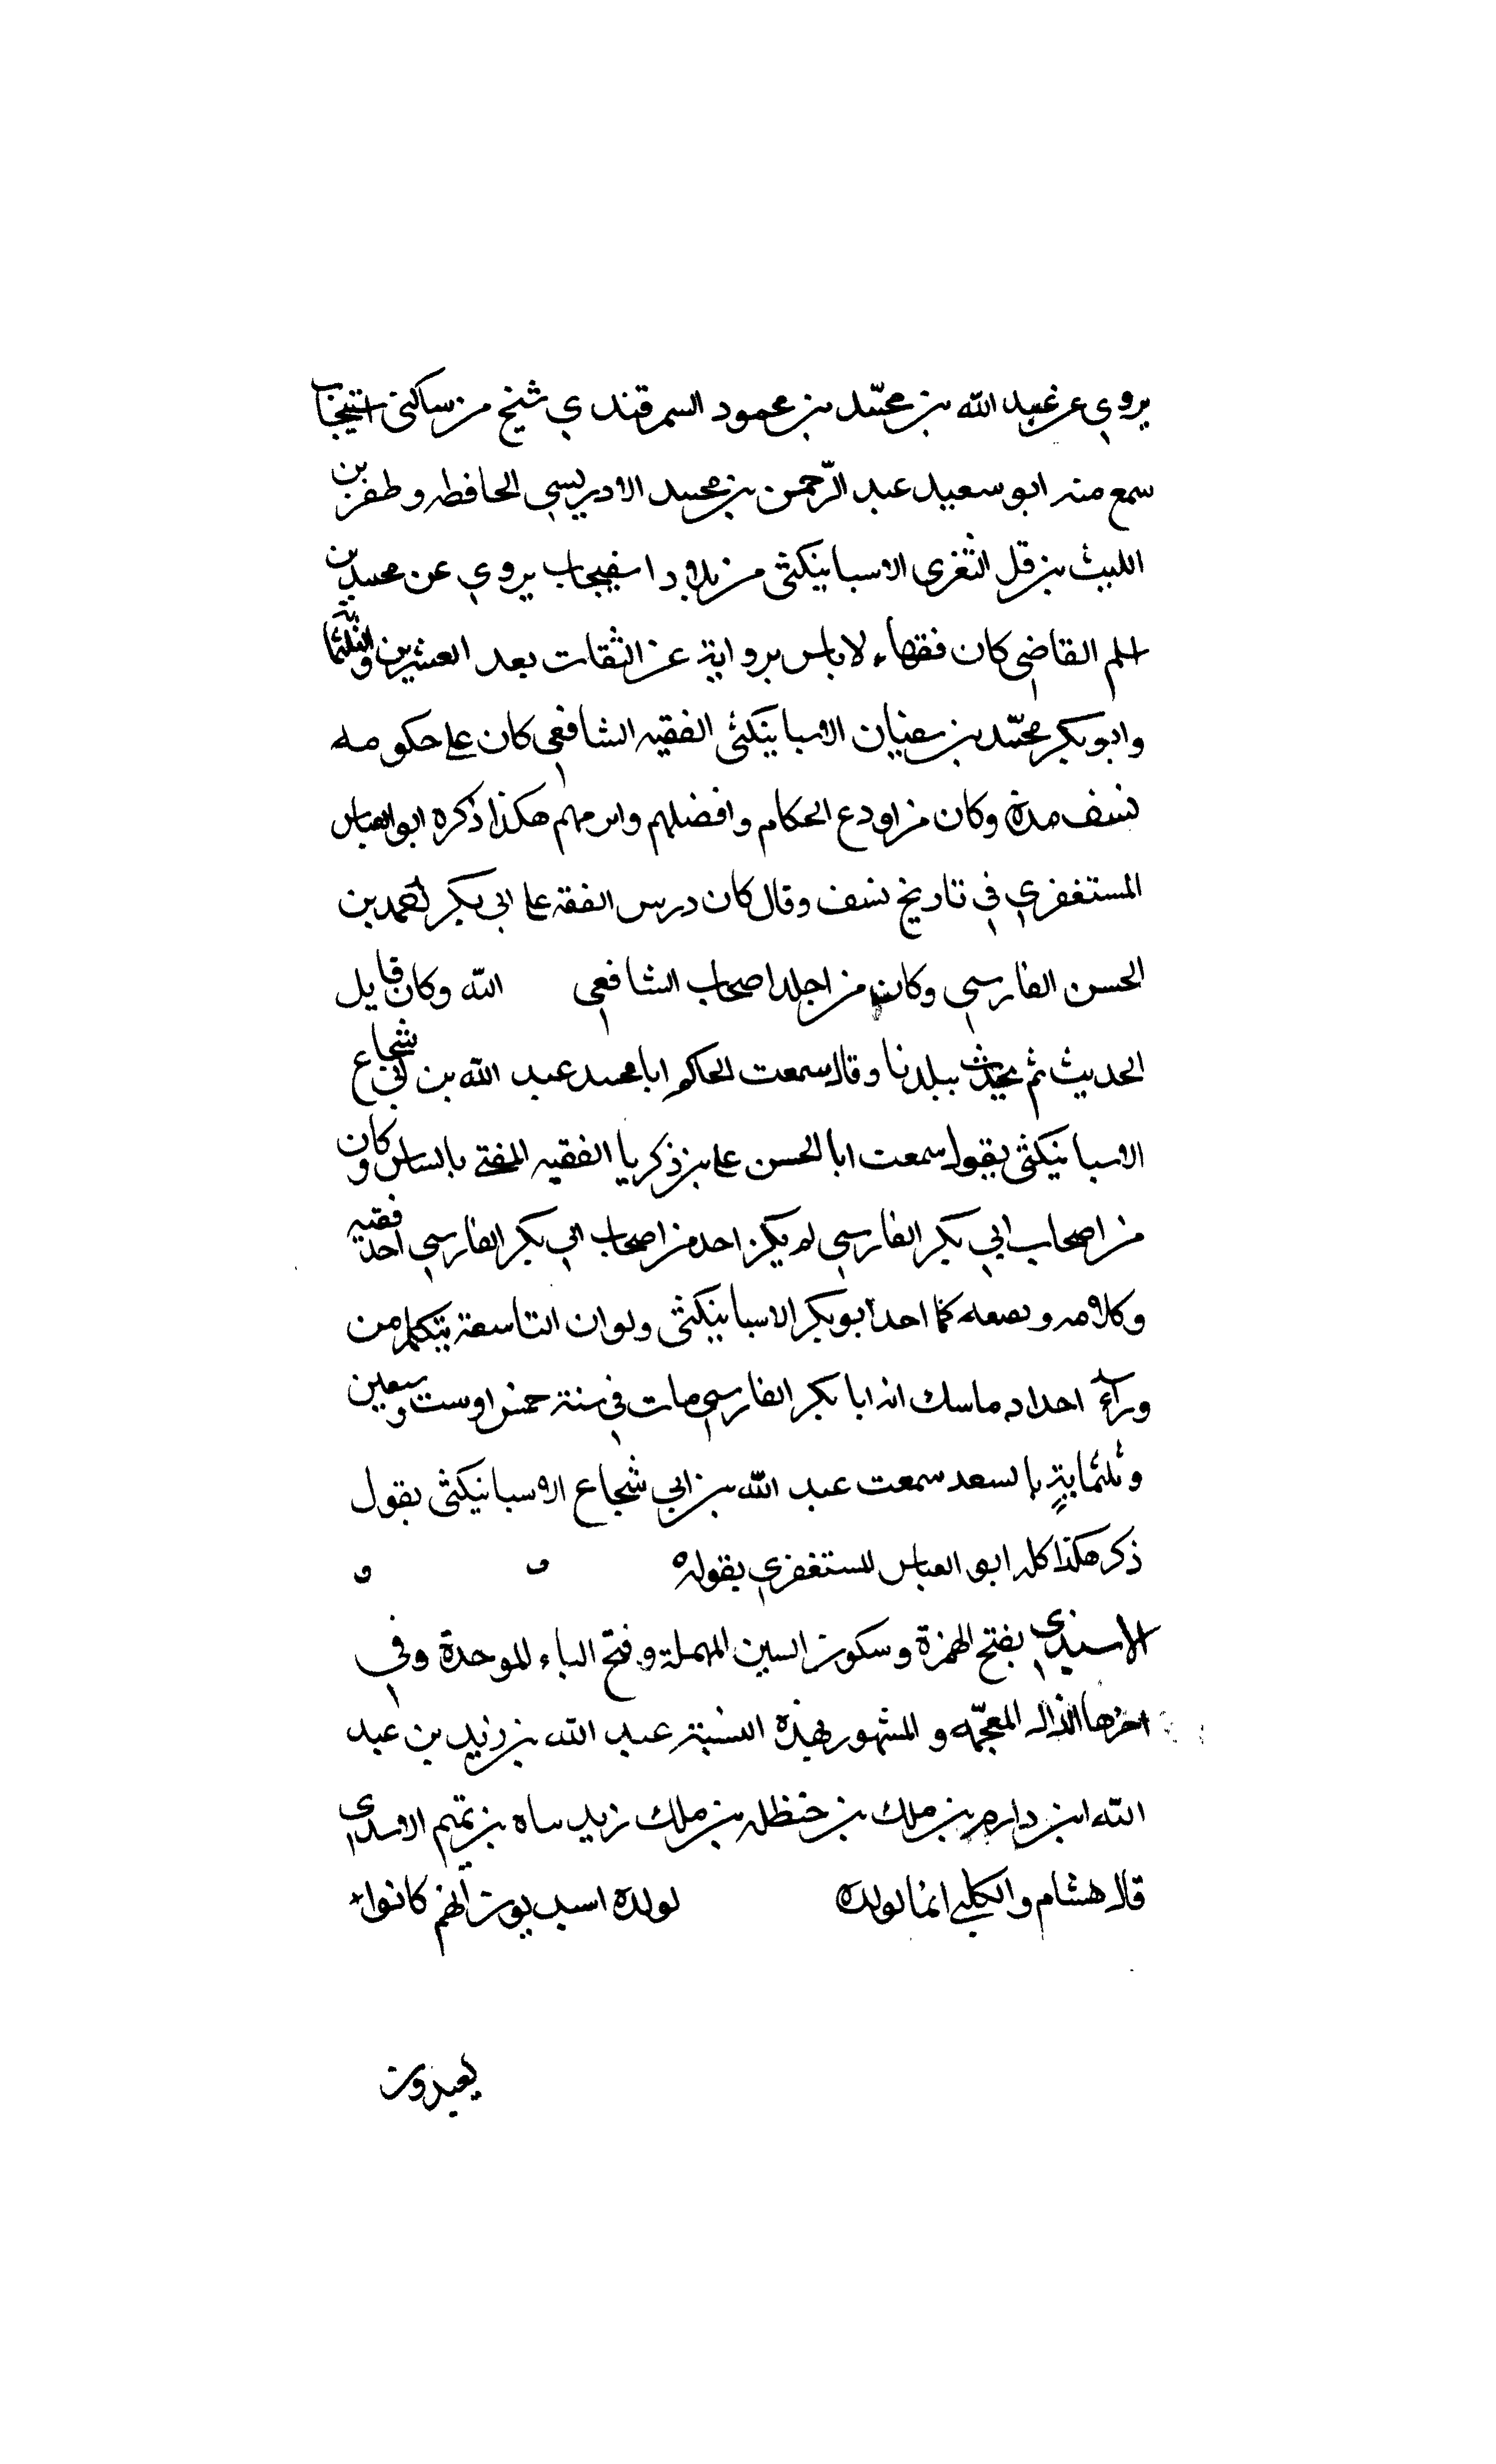 يروي عن عبيد الله بن محمد بن محمود السمرقندي شيخ من ساكني استيجاب
سمع منه ابو سعيد عبد الرحمن بن محمد الادريسي الحافظ وظفر بن
الليث بن قل الثغرى الاسبانيكثى من بلاد اسفيجاب يروي عن محمد بن
اسلم القاضي كان فقهاء لا باس برواية عن الثقات بعد العشرين والثلثمائة
وابو بكر محمد بن سفيان الاسبانيكثى الفقيه الشافعي كان على حكومه
نسف مدة وكان من اودع الحكام وافضلهم هكذا ذكره ابو العباس
المستغفري في تاريخ نسف وقال كان درس الفقه على ابي بكر احمد بن
الحسن الفارسي وكان من اجلد اصحاب الشافعي الله وكان قايل
الحديث ثم يحدث ببلدنا وقال سمعت الحاكم ابا محمد عبد الله بن ابي شجاع
الاسبانيكثى يقول سمعت ابا الحسن على بن زكريا الفقيه المفتى بالساس وكان
من اصحاب ابي بكر الفارسي لم يكن احد من اصحاب ابي بكر الفارسي احد فقيه
وكلامه وصعه كما احد ابو بكر الاسبانيكثى ولو ان التاسعة يتكلم من
ورآء احداد ماسك انه ابا بكر الفارسي مات في سنة خمس او ست وسبعين
وثلثماية بالسعد سمعت عبد الله بن ابي شجاع الاسبانيكثى يقول
ذكر هكذا كله ابو العباس المستغفري بقوله
الاسبذي بفتح الهمزة وسكون السين المهملة وفتح الباء الموحدة وفي
اخرها الذال المعجمة والمشهور بهذه النسبة عبد الله بن زيد بن عبد
الله ابن دارم بن ملك بن حنظله بن ملك زيد ساه بن تميم الاسبذي
قال هشام والكلبي انما لولده لولده اسبديون انهم كانوا
يعبدون